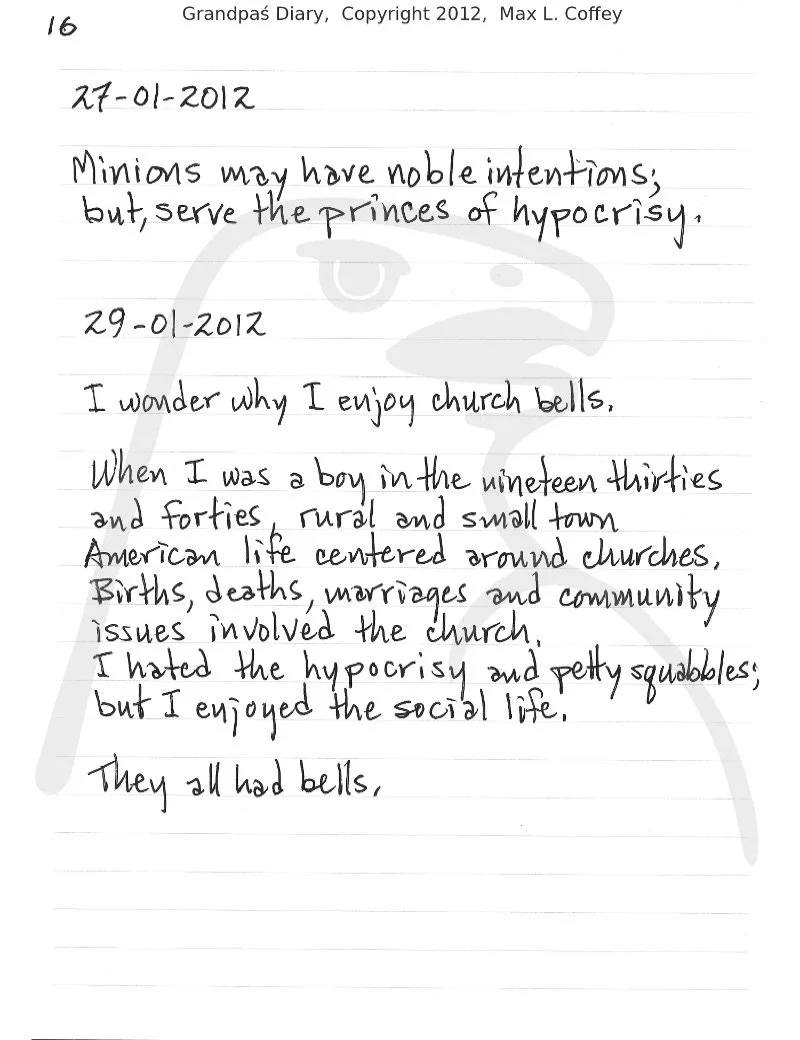 Grandpaś Diary, Copyright 2012, Max L. Coffey
16
27-01-2012
Minions may have noble intentions;
but, serve the princes of hypocrisy.
29-01-2012
I wonder why I enjoy church bells.
When I was a boy in the nineteen thirties
and forties, rural and small town
American life centered around churches.
Births, deaths, marriages and community
issues involved the church.
I hated the hypocrisy and petty squabbles;
but I enjoyed the social life.
They all had bells.